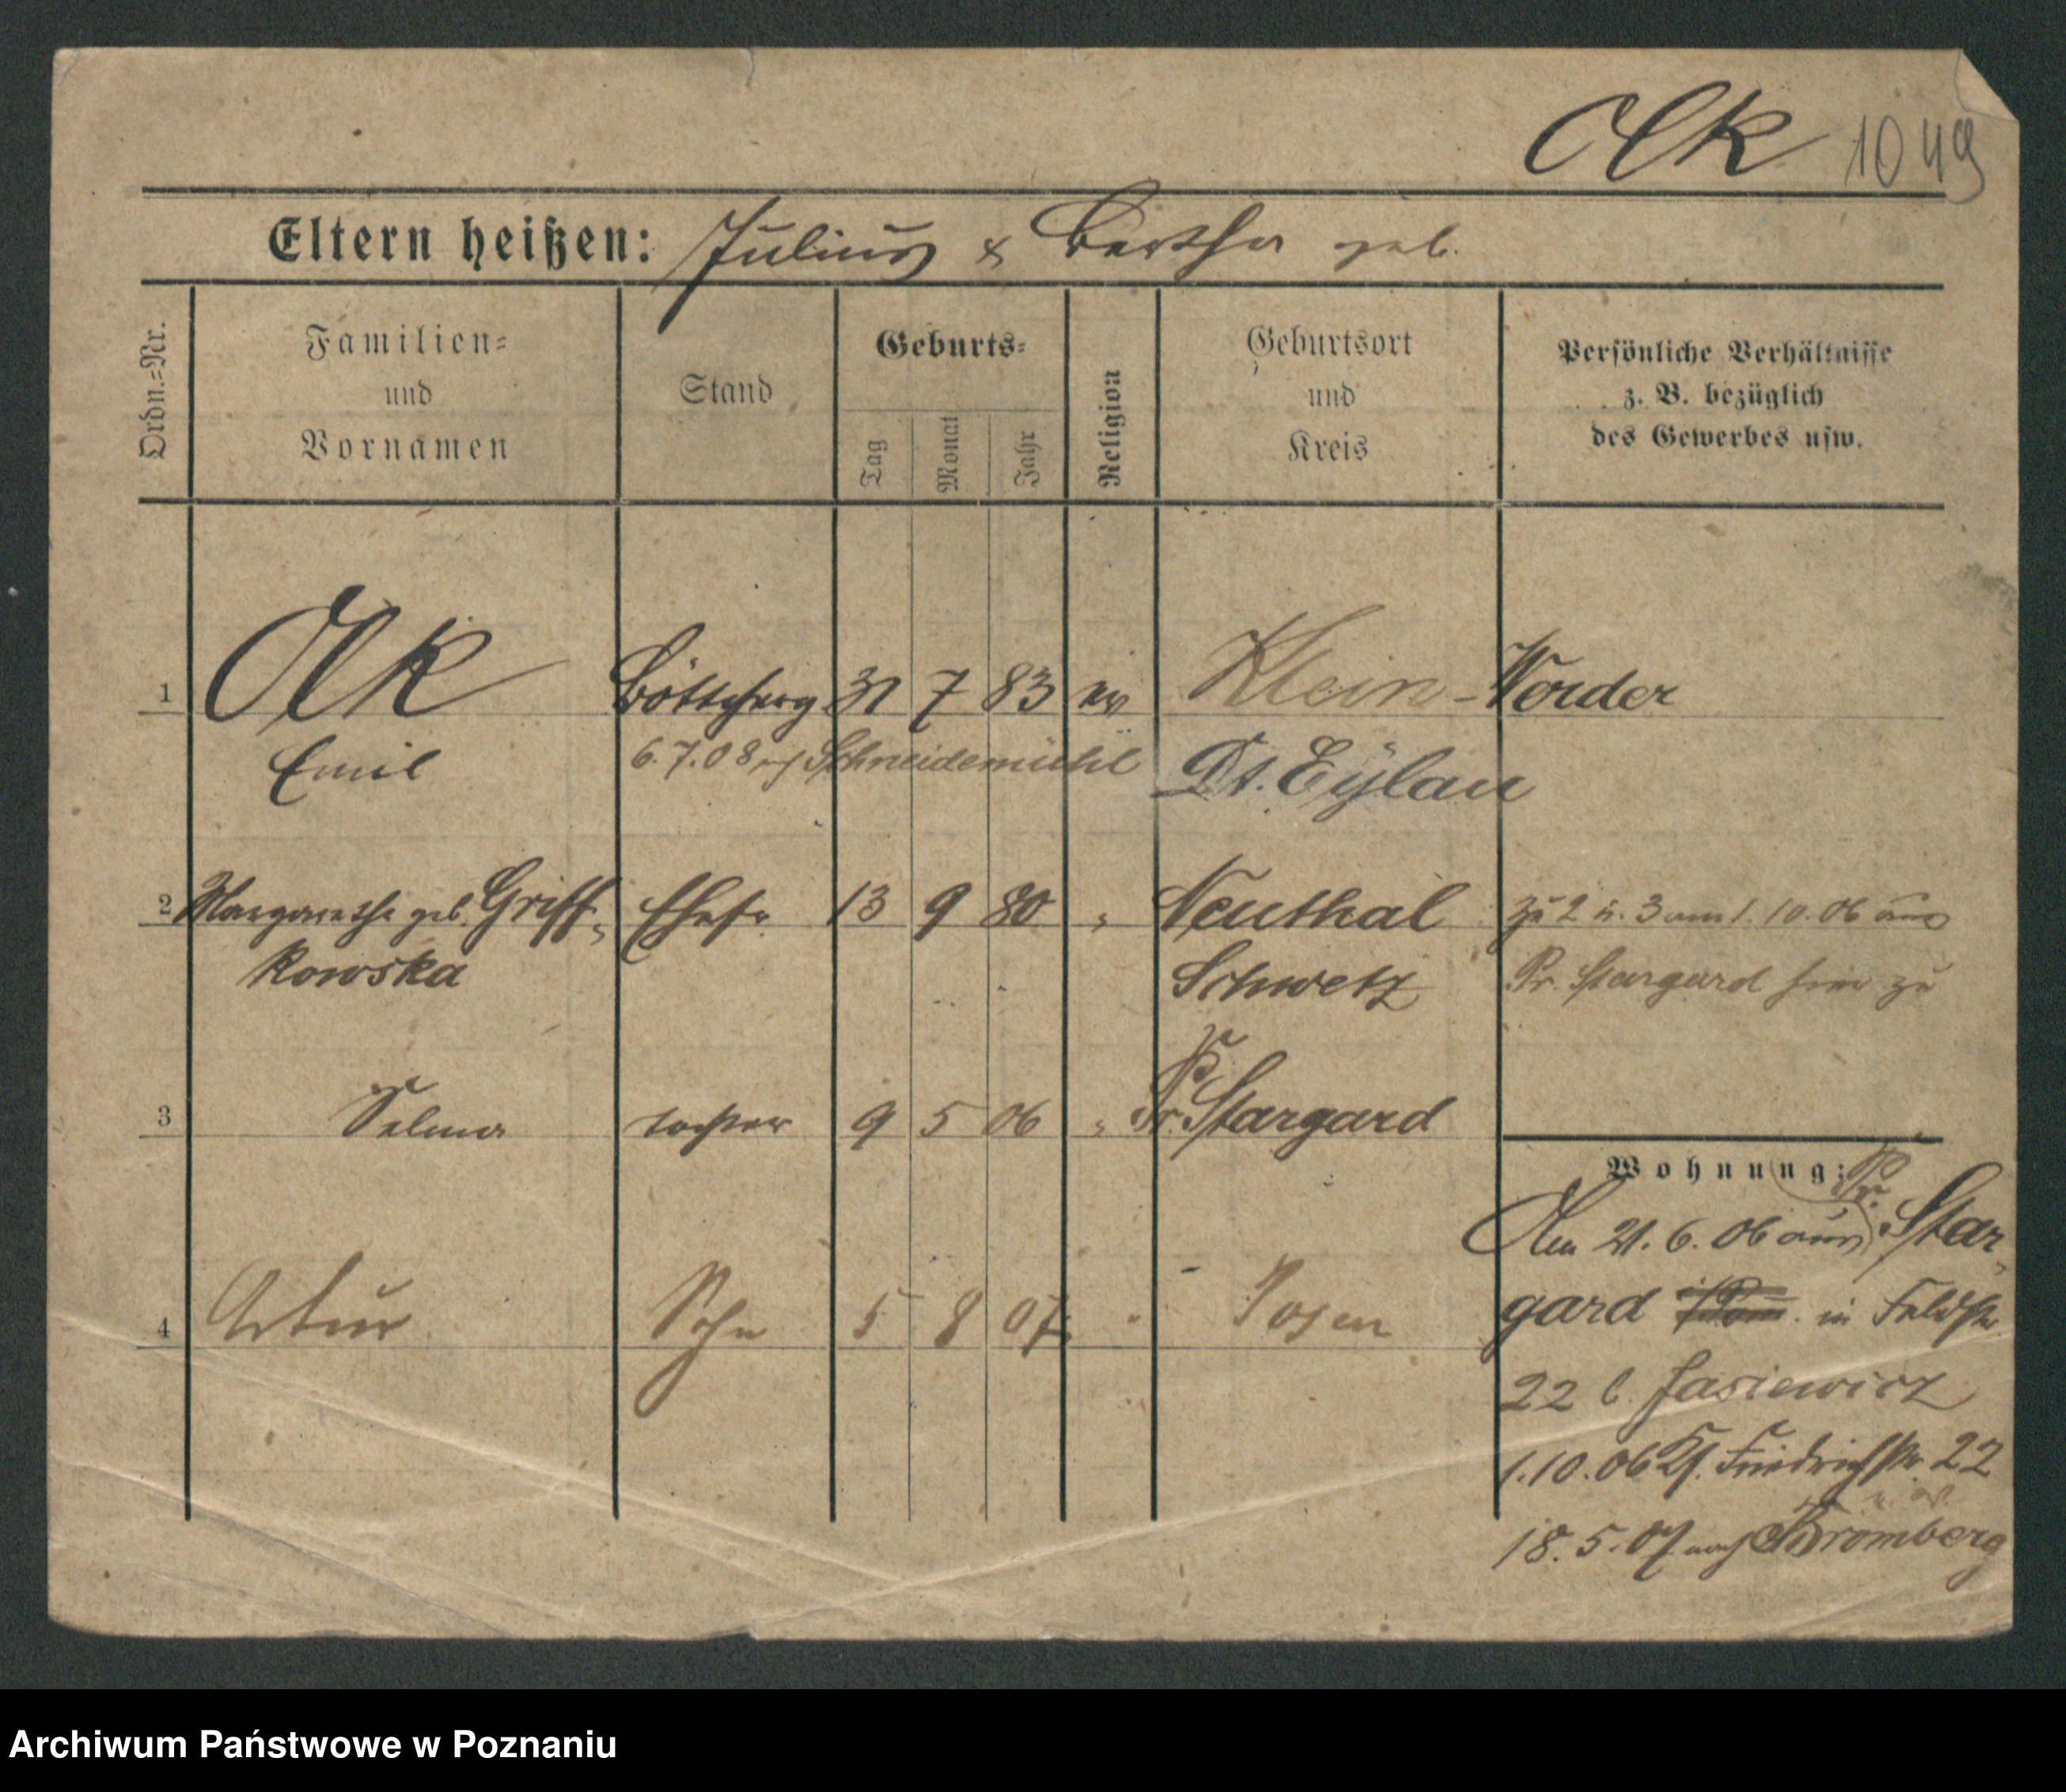 Olk 1049
Eltern heißen: Julius & Bertha geb.
Ordn.=Nr.
Familien=
und
Vornamen
Stand
Geburts=
Tag
Monat
Jahr
Religion
Geburtsort
und
Kreis
Persönliche Verhältnisse
z. B. bezüglich
des Gewerbes usw.
1 Olk 31 7 83 ev Klein-Werder
Emil 6.7.08 n/ Schneidemühl Dt. Eylau
2 Margarethe geb. Griff- Ehefr. 13 9 80 " Neuthal zu 2 u. 3 am 1.10.06 aus
kowska Schwetz Pr. Stargard hier zu
3 Selma tochter 9 5 06 " Pr. Stargard
Wohnung:
Am 21.6.06 aus Pr. Star-
4 Artur Sohn 5 8 07 " Posen
gard in Feldstr
22 b. Jasiewicz
1.10.06 Kf. Friedrichstr. 22
18.5.07 nach Bromberg
Archiwum Państwowe w Poznaniu